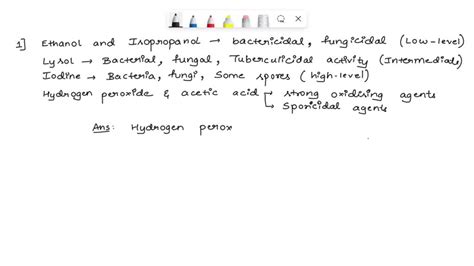 1] Ethanol and Isopropanol → bactericidal, fungicidal (Low-level)
Lysol → Bacterial, fungal, Tuberculicidal activity (Intermediate)
Iodine → Bacteria, fungi, Some spores (high-level)
Hydrogen peroxide & acetic acid → strong oxidising agents
→ Sporicidal agents
Ans: Hydrogen perox